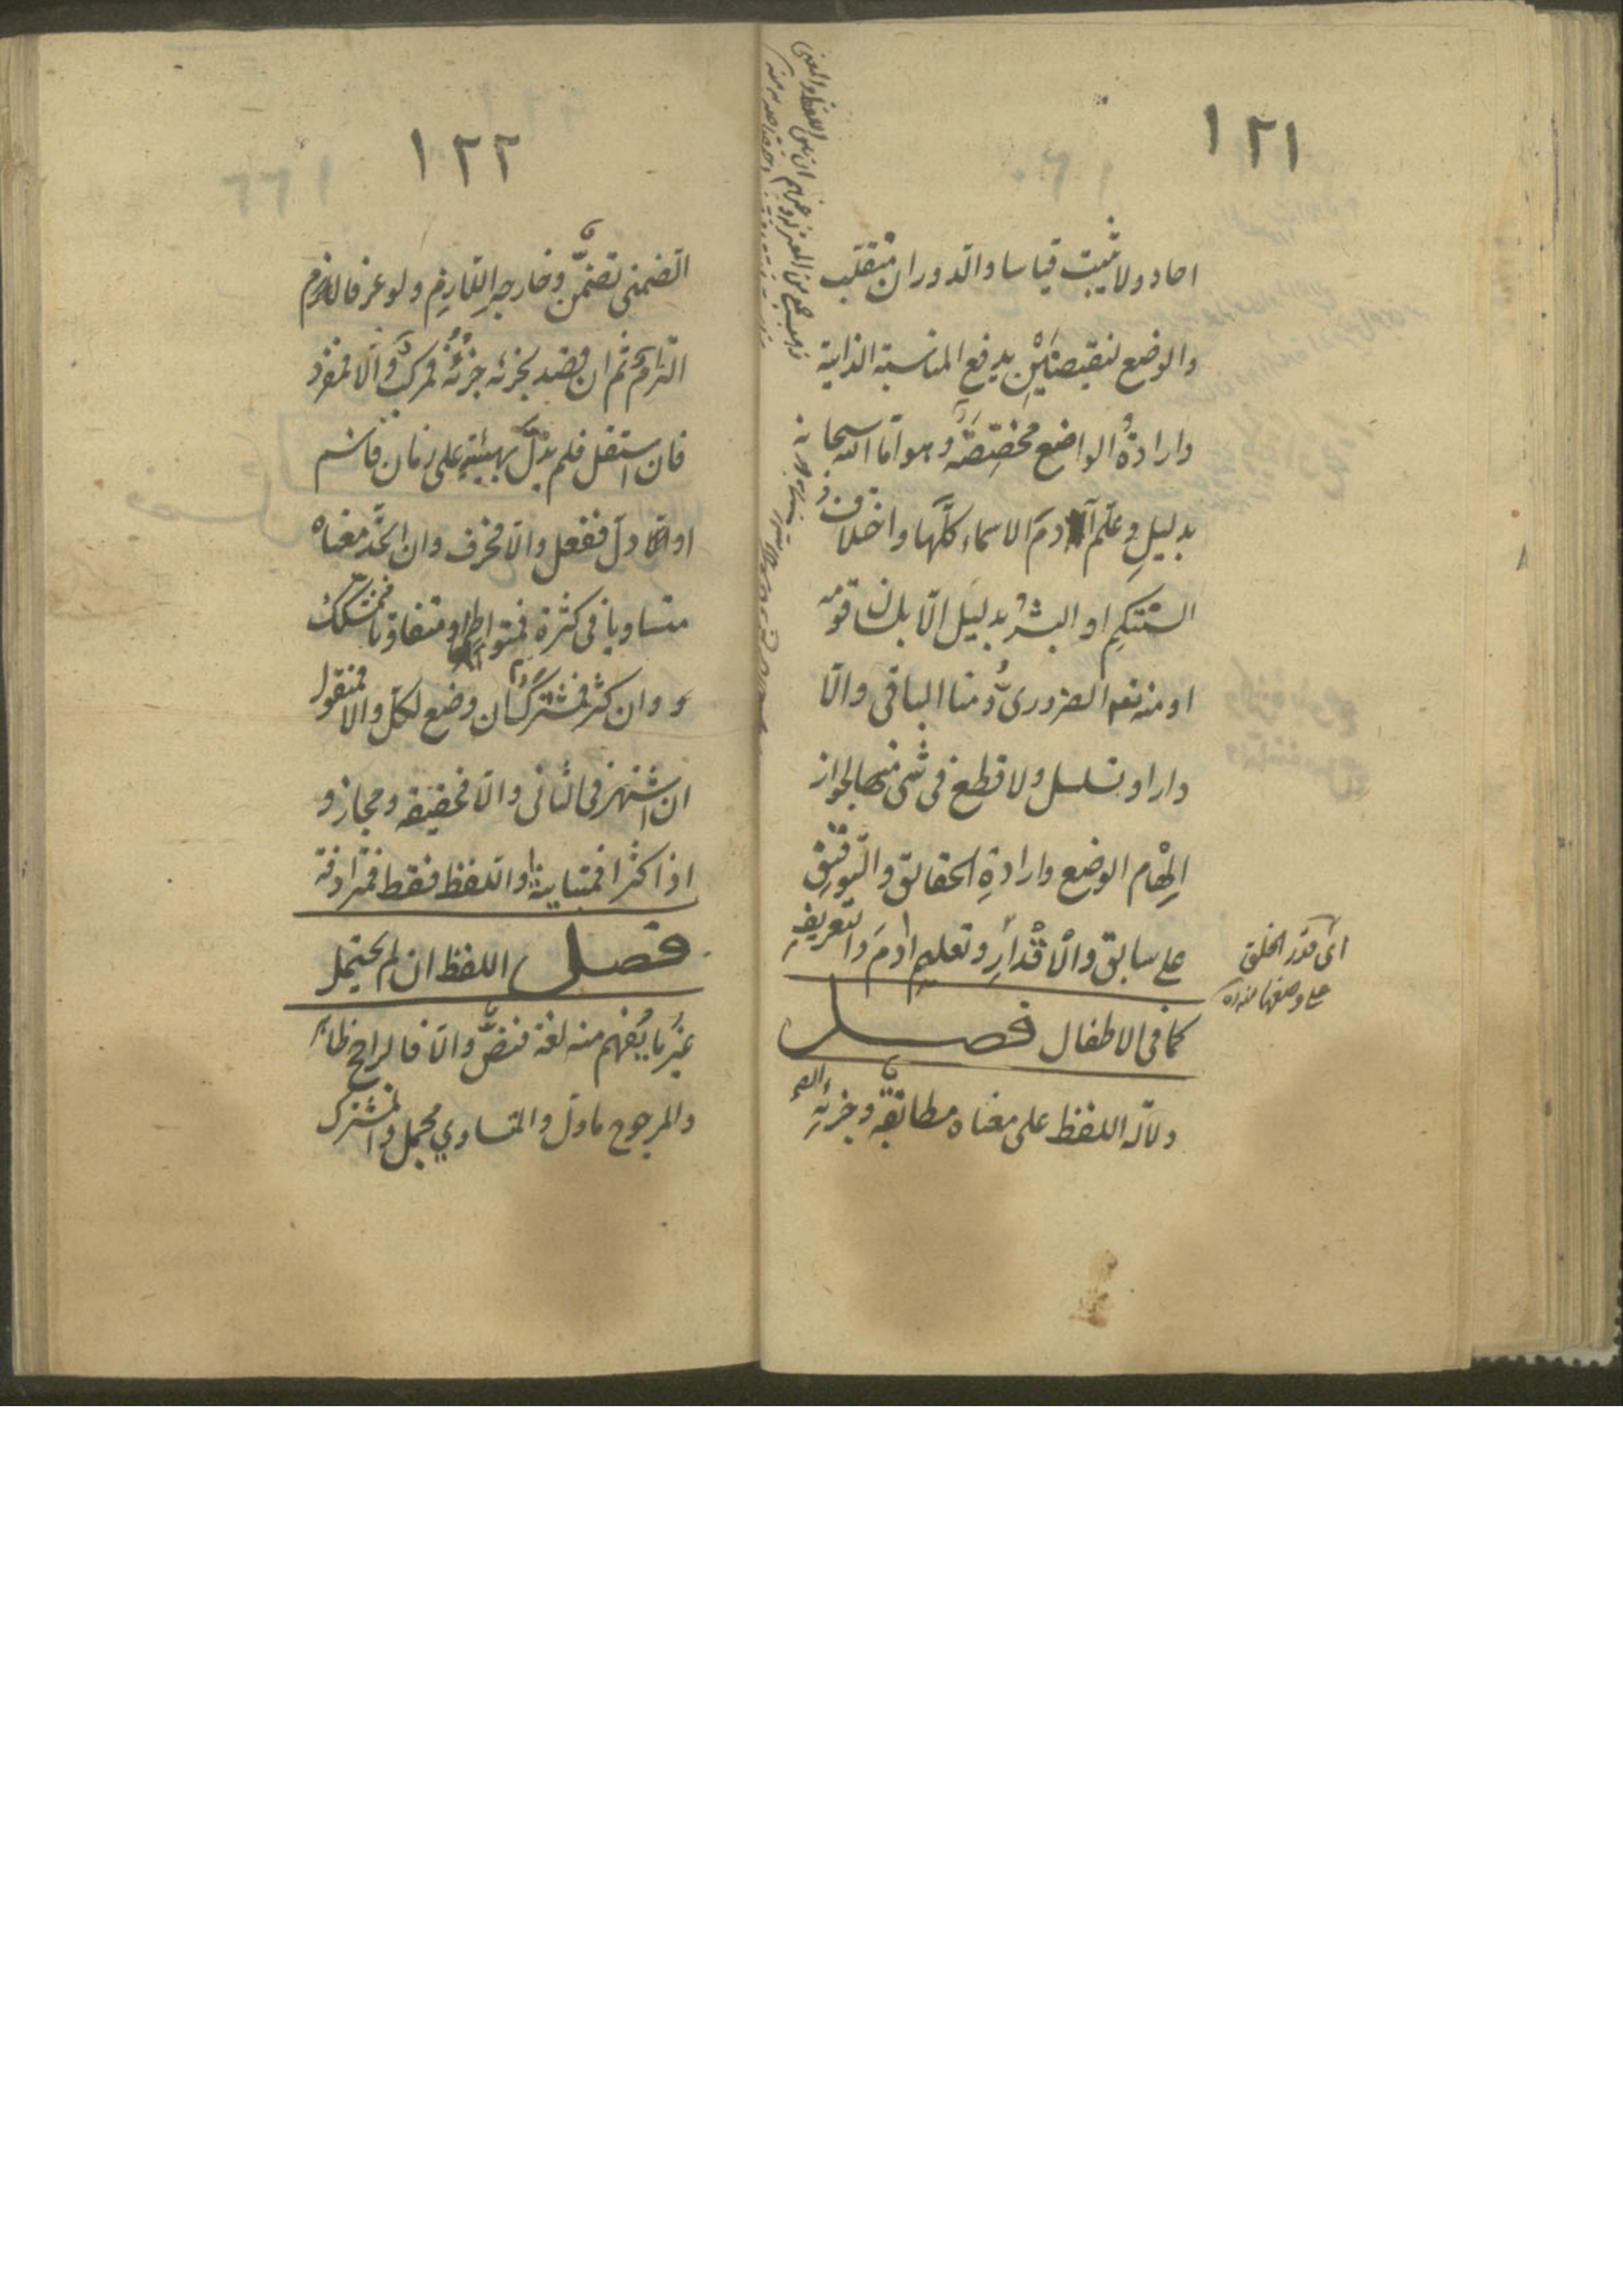 ١٢١
احاد ولا يثبت قياسا والدوران منقلب
والوضع لنقيضَيْنِ يدفع المناسبة الذاتية
وارادةُ الواضع مخصّصةٌ وهو اما الله سبحانه
بدليلِ وعلّم آدمَ الاسماء كلَّها واختلاف
السنتكم او البشرُ بدليل الا بلسان قومه
او منه نعم الضرورىُّ ومنا الباقى والّا
دار او تسلسل ولا قطع فى شىء منها لجواز
اِلْهام الوضع وارادةِ الحقائق والتوفيق
على سابق والاقْدارِ وتعليمِ ادمَ والتعريفِ
كما فى الاطفال فصل
دلالة اللفظ على معناه مطابقة وجزئِهِ
اى قدر الخلق
على وضعها منه ره
ذهب جمع من المعتزلة وغيرهم ان بين اللفظ والمعنى
١٢٢
التضمنى تضمّن وخارجِهِ اللازمِ ولو عرفا له
التزامٌ ثم ان قصد بجزئه جزئُه فمركبٌ والّا فمفرد
فان استقل فلم يدلّ بهيئتِهِ على زمان فاسم
او دلّ ففعل والا فحرف وان اتّحد معناه
متساويا فى كثرة فمتواطٍ او متفاوتا فمشكّك
وان كثر فمشتركٌ ان وضع لكلّ والا فمنقول
ان اشتهر فى الثانى والّا فحقيقة ومجاز و
اذا كثرا فمتباينة او اللفظ فقط فمترادفة
فصل اللفظ ان لم يحتمل
غيرَ ما يُفْهم منه لغة فنصٌّ والّا فالراجح ظاهر
والمرجوح ماول والمتساوي مجمل والمشترك